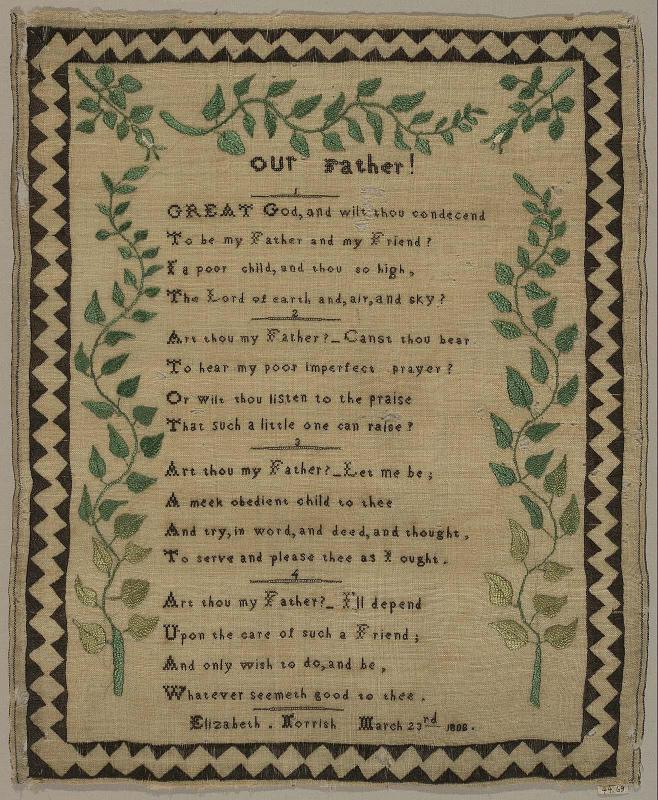 OUR Father!
1
GREAT God, and wilt thou condecend
To be my Father and my Friend?
I a poor child, and thou so high,
The Lord of earth and, air, and sky?
2
Art thou my Father?_Canst thou bear
To hear my poor imperfect prayer?
Or wilt thou listen to the praise
That such a little one can raise?
3
Art thou my Father?_Let me be;
A meek obedient child to thee
And try, in word, and deed, and thought,
To serve and please thee as I ought.
4
Art thou my Father?_ I'll depend
Upon the care of such a Friend;
And only wish to do, and be,
Whatever seemeth good to thee.
Elizabeth . Norrish March 23rd 1808.